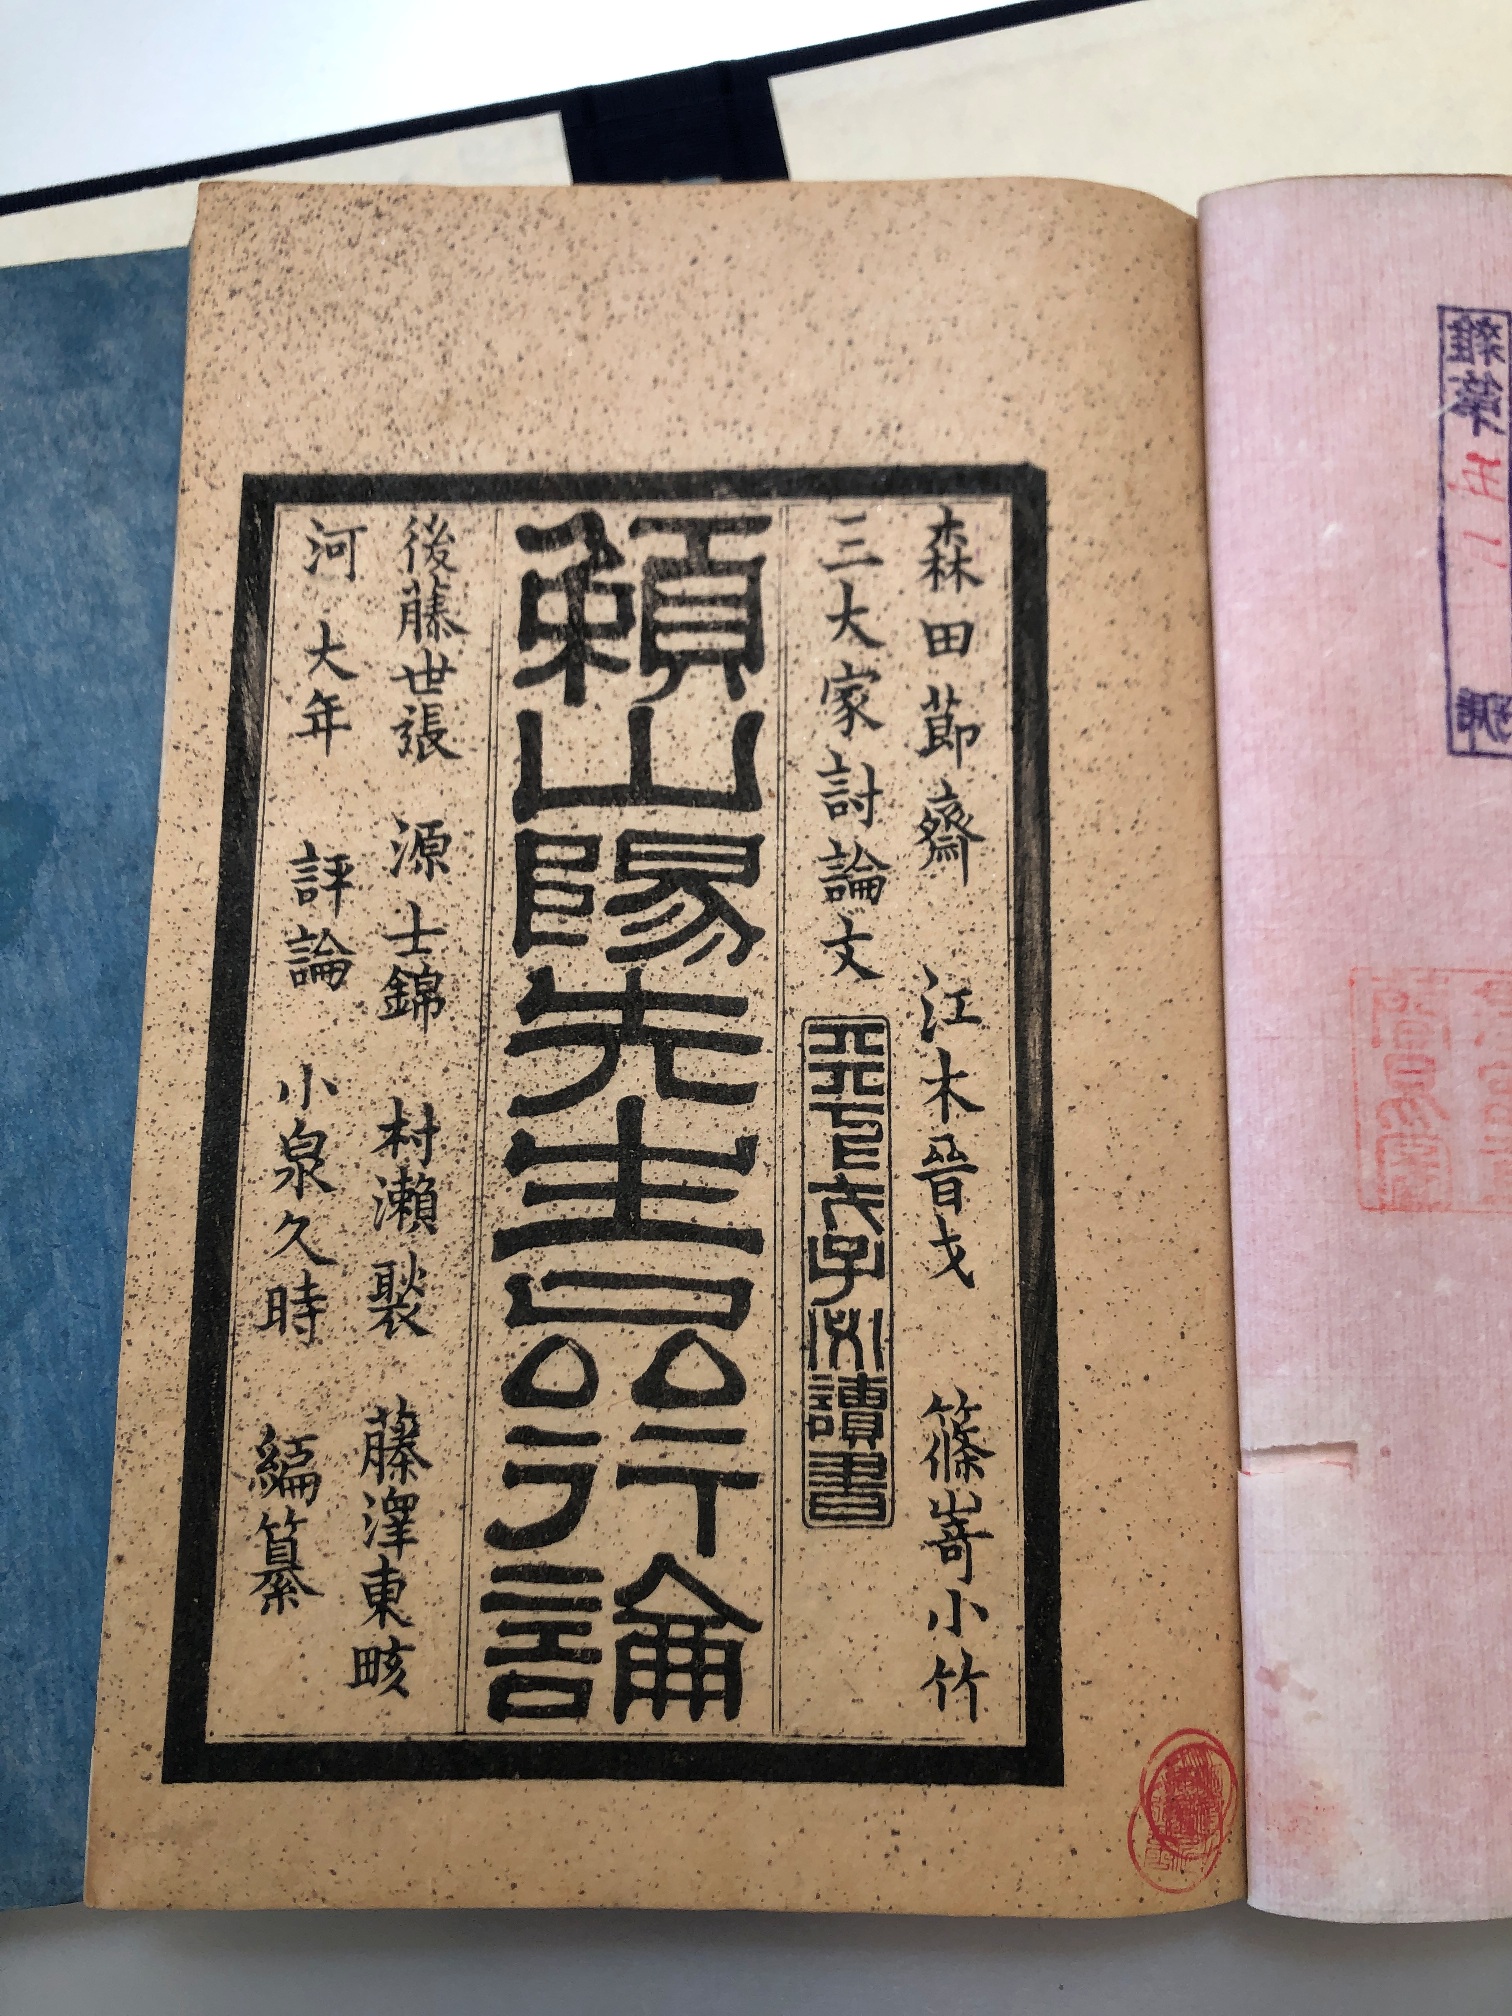 森田節齋 江木晉戈 篠嵜小竹
三大家討論文
頼山陽先生品行論
後藤世張 源士錦 村瀬褧 藤澤東畡
河大年 評論 小泉久時 編纂